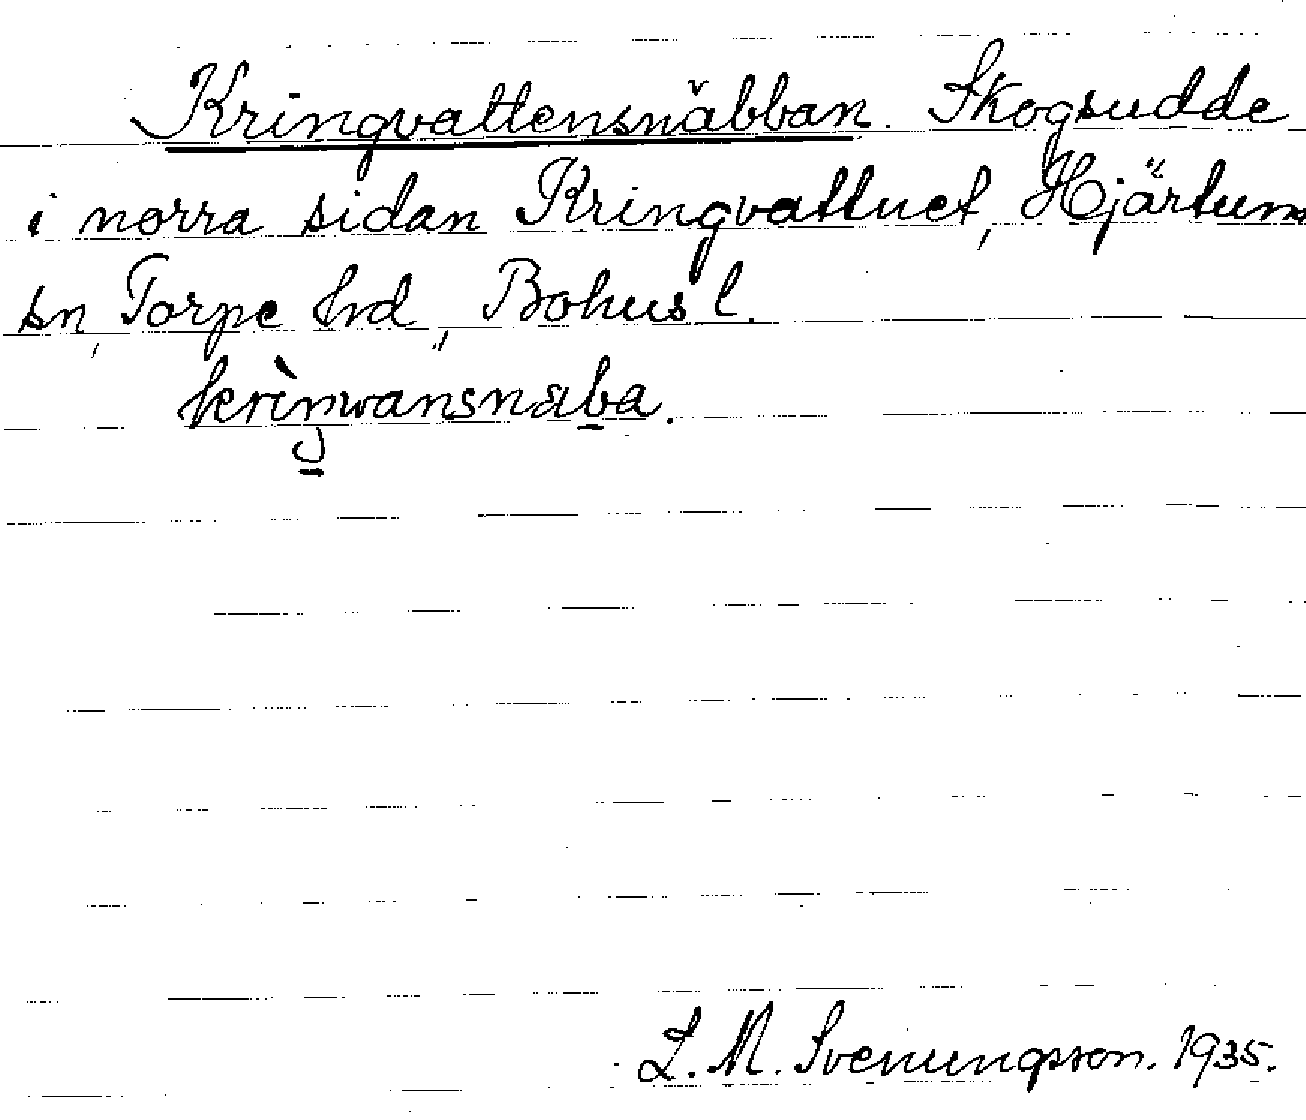 Kringvattensnäbban. Skogsudde
i norra sidan Kringvattnet, Hjärtums
sn, Torpe hrd, Bohusl.
krìŋwansnäba.
L. M. Svenungsson. 1935.